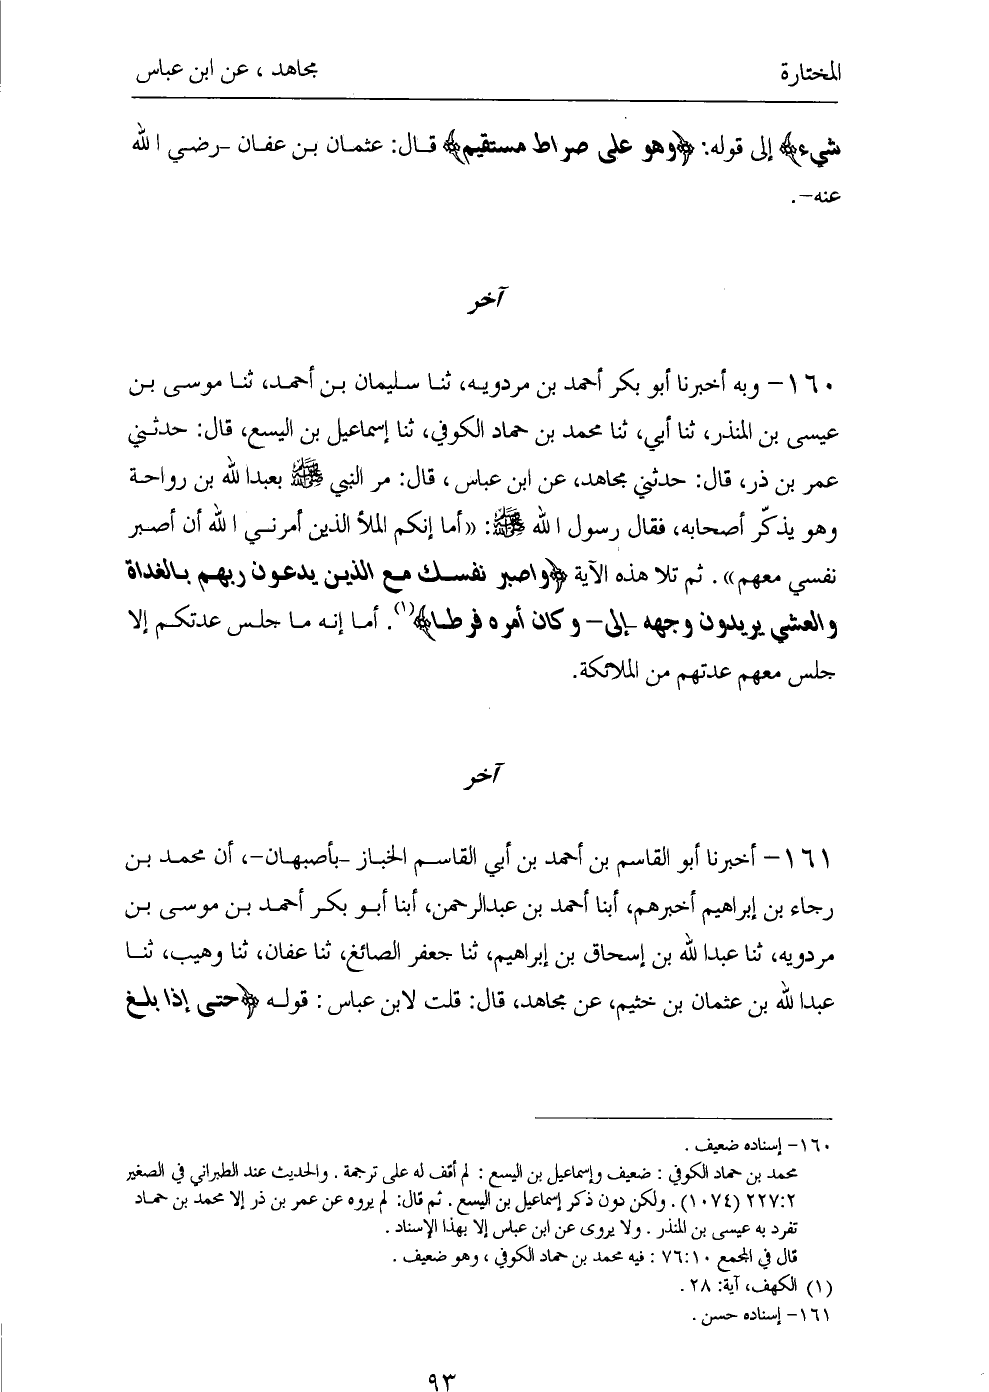 المختارة
مجاهد ، عن ابن عباس
شيء﴾ إلى قوله: ﴿وهو على صراط مستقيم﴾ قال: عثمان بن عفان -رضي الله
عنه-.
آخر
١٦٠- وبه أخبرنا أبو بكر أحمد بن مردويه، ثنا سليمان بن أحمد، ثنا موسى بن
عيسى بن المنذر، ثنا أبي، ثنا محمد بن حماد الكوفي، ثنا إسماعيل بن اليسع، قال: حدثني
عمر بن ذر، قال: حدثني مجاهد، عن ابن عباس ، قال: مر النبي ﷺ بعبدالله بن رواحة
وهو يذكّر أصحابه، فقال رسول الله ﷺ: «أما إنكم الملأ الذين أمرني الله أن أصبر
نفسي معهم» . ثم تلا هذه الآية ﴿واصبر نفسك مع الذين يدعون ربهم بالغداة
والعشي يريدون وجهه -إلى- وكان أمره فرطا﴾(١). أما إنه ما جلس عدتكم إلا
جلس معهم عدتهم من الملائكة.
آخر
١٦١- أخبرنا أبو القاسم بن أحمد بن أبي القاسم الخباز -بأصبهان-، أن محمد بن
رجاء بن إبراهيم أخبرهم، أبنا أحمد بن عبدالرحمن، أبنا أبو بكر أحمد بن موسى بن
مردويه، ثنا عبدالله بن إسحاق بن إبراهيم، ثنا جعفر الصائغ، ثنا عفان، ثنا وهيب، ثنا
عبدالله بن عثمان بن خثيم، عن مجاهد، قال: قلت لابن عباس : قوله ﴿حتى إذا بلغ
١٦٠- إسناده ضعيف .
محمد بن حماد الكوفي : ضعيف وإسماعيل بن اليسع : لم أقف له على ترجمة . والحديث عند الطبراني في الصغير
٢٢٧:٢ (١٠٧٤) . ولكن دون ذكر إسماعيل بن اليسع . ثم قال: لم يروه عن عمر بن ذر إلا محمد بن حماد
تفرد به عيسى بن المنذر . ولا يروى عن ابن عباس إلا بهذا الإسناد .
قال في المجمع ٧٦:١٠ : فيه محمد بن حماد الكوفي ، وهو ضعيف .
(١) الكهف، آية: ٢٨ .
١٦١- إسناده حسن .
٩٣